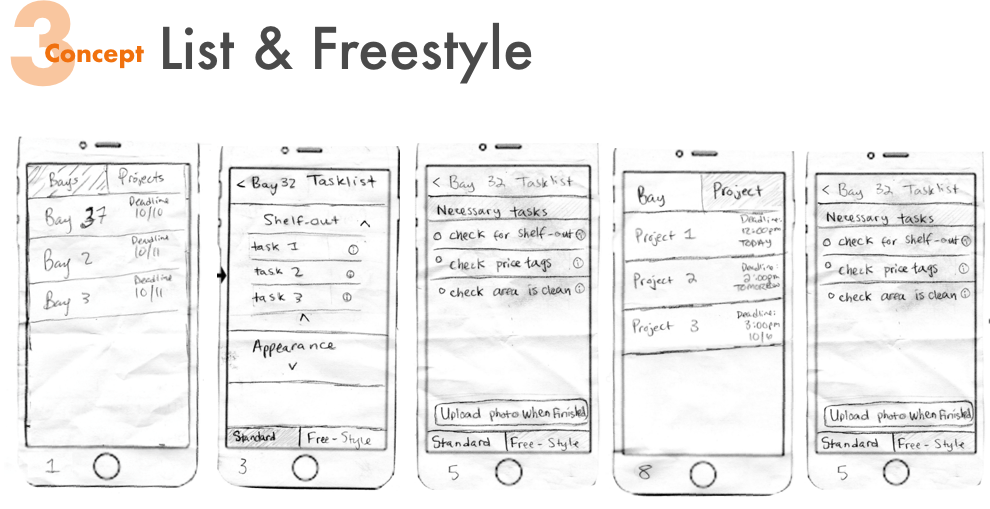 3
Concept List & Freestyle
Bays Projects
Bay 37
Deadline
10/10
Bay 2
Deadline
10/11
Bay 3
Deadline
10/11
1
< Bay 32 Tasklist
Shelf-out ^
task 1 i
task 2 i
task 3 i
^
Appearance
v
Standard Free-Style
3
< Bay 32 Tasklist
Necessary tasks
check for shelf-out i
check price tags i
check area is clean i
Upload photo when finished
Standard Free-Style
5
Bay Project
Project 1
Deadline:
12:00pm
TODAY
Project 2
Deadline:
2:00pm
TOMORROW
Project 3
Deadline:
3:00pm
10/6
8
< Bay 32 Tasklist
Necessary tasks
check for shelf-out i
check price tags i
check area is clean i
Upload photo when finished
Standard Free-Style
5